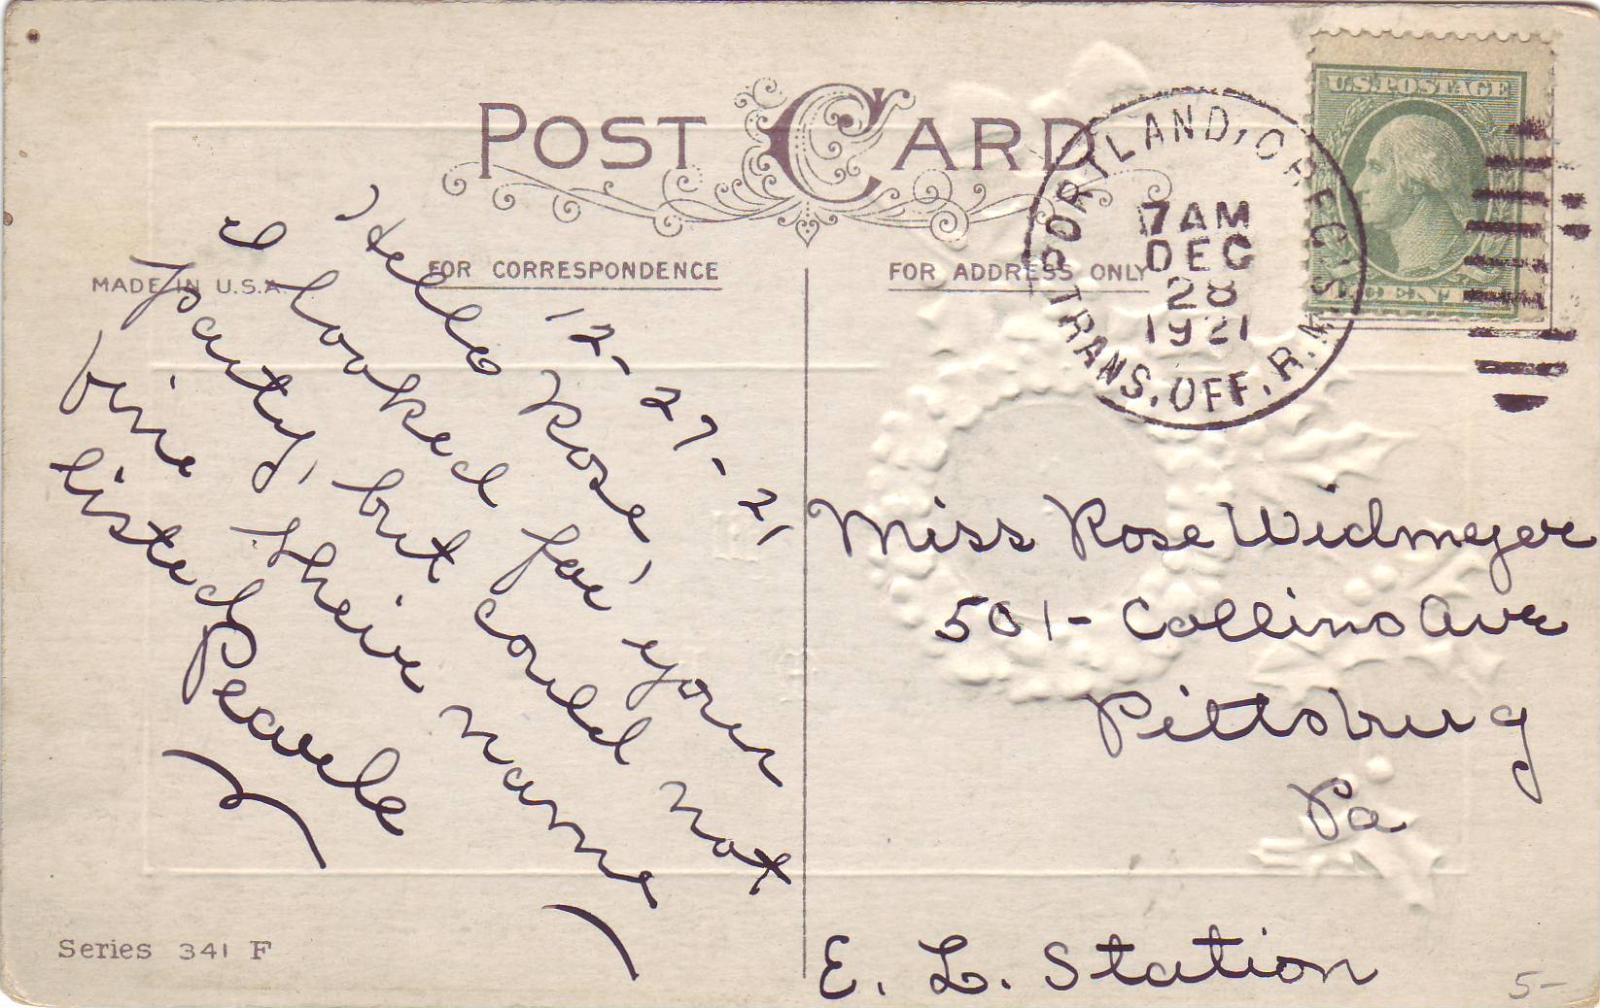 POST CARD
MADE IN U.S.A.
FOR CORRESPONDENCE
FOR ADDRESS ONLY
U.S. POSTAGE
PORTLAND, OREG.
7 AM
DEC
28
1921
TRANS. OFF. R.M.S.
12-27-21
Hello Rose
I looked for your
party, but could not
find their name
listed
Pearle
Miss Rose Widmeyer
501- Collins Ave
Pittsburg
Pa
E. L. Station
Series 341 F
5-